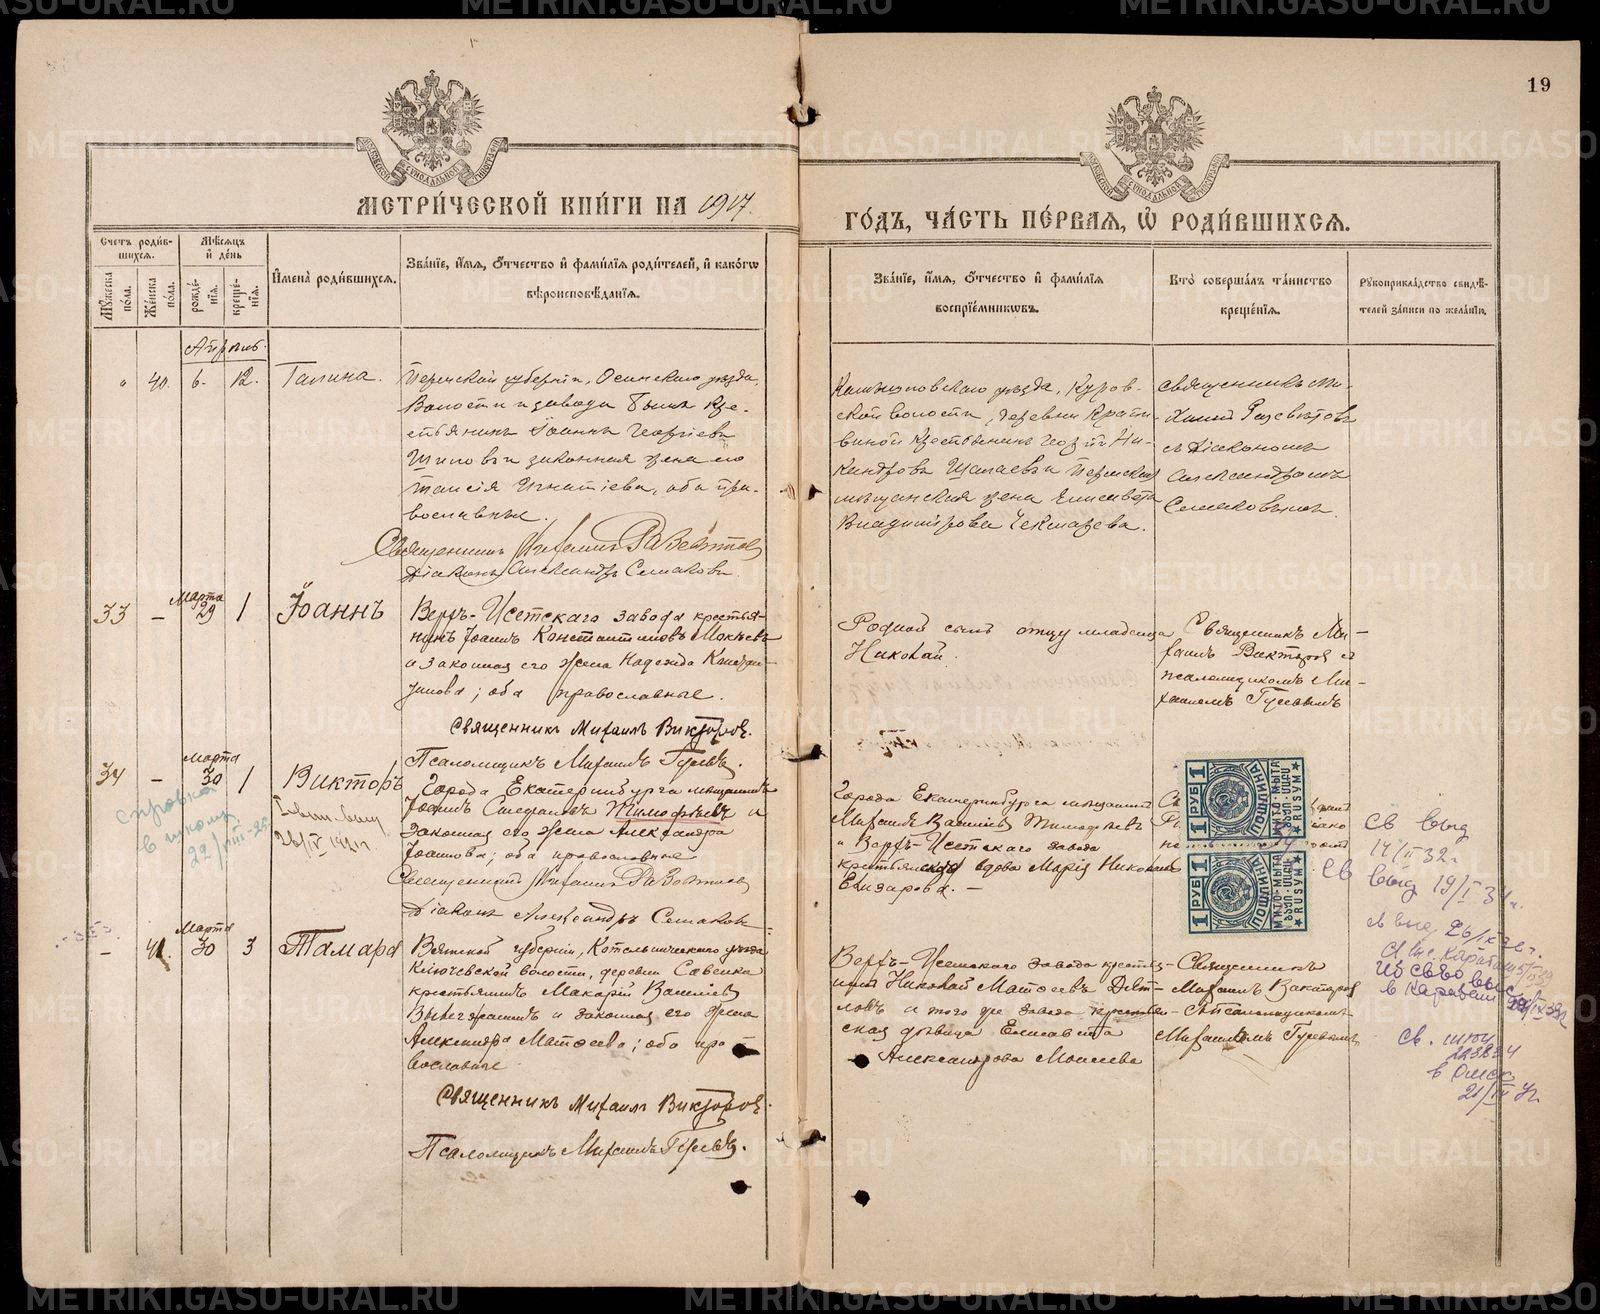 19
МЕТРИ́ЧЕСКОЙ КНИ́ГИ НА 1917.
ГО́ДЪ, ЧА́СТЬ ПЕ́РВАЯ, Ѡ РОДИ́ВШИХСЯ.
Счетъ роди́вшихся.
Мѣ́сяцъ и҆ де́нь
Мꙋ́жеска по́ла.
Же́нска по́ла.
рожде́нїя.
креще́нїя.
И҆мена̀ роди́вшихся.
Зва́нїе, и҆́мя, ѻ҆́тчество и҆ фами́лїя роди́телей, и҆ како́гѡ вѣроисповѣ́данїя.
Зва́нїе, и҆́мя, ѻ҆́тчество и҆ фами́лїя воспрїе́мникѡвъ.
Кто̀ соверша́лъ та́инство креще́нїя.
Рꙋкоприкла́дство свидѣ́телей за́писи по жела́нїю.
Апрѣль.
" 40. 6. 12. Галина.
Пермской губерніи, Осинскаго уѣзда,
Волости и завода Бымъ кре-
стьянинъ Іоаннъ Георгіевъ
и законная жена его
Таисія Игнатіева, оба пра-
вославные.
Священникъ Михаилъ Разсвѣтовъ
Діаконъ Александръ Семаковъ.
Камышловскаго уѣзда, Куров-
ской волости, деревни
крестьянинъ Георгій Ни-
кандровъ и Пермская
мѣщанская жена Елисавета
Владимірова Чекмарева.
Священникъ Ми-
хаилъ Разсвѣтовъ
съ Діакономъ
Александромъ
Семаковымъ.
33 – Марта 29 1 Іоаннъ
Верхъ-Исетскаго завода крестья-
нинъ Іоаннъ Константиновъ Мокѣевъ
и законная его жена Надежда Констан-
тинова; оба православные.
Священникъ Михаилъ Викторовъ.
Псаломщикъ Михаилъ Гусевъ.
Родной сынъ отцу младенца
Николай.
Священникъ Ми-
хаилъ Викторовъ съ
псаломщикомъ Ми-
хаиломъ Гусевымъ
34 – Марта 30 1 Викторъ
справка
в школу
26/IV 1921г
Города Екатеринбурга мѣщанинъ
Іоаннъ Стефановъ Тимофѣевъ и
законная его жена Александра
Іоаннова; оба православные
Священникъ Михаилъ Разсвѣтовъ
Діаконъ Александръ Семаковъ
Города Екатеринбурга мѣщанинъ
Михаилъ Василіевъ Тимофѣевъ
и Верхъ-Исетскаго завода
крестьянская вдова Марія Николаева
Елизарова. –
1 РУБ 1
ПОШЛИНА
RUSYM
1 РУБ 1
ПОШЛИНА
RUSYM
Св выд
14/II 32г.
Св выд 19/I 34г.
– 41. Марта 30 3 Тамара
Вятской губерніи, Котельническаго уѣзда
Ключевской волости, деревни Савенка
крестьянинъ Макарій Василіевъ
и законная его жена
Александра Матѳеева; оба пра-
вославные
Священникъ Михаилъ Викторовъ.
Псаломщикъ Михаилъ Гусевъ.
Верхъ-Исетскаго завода крестья-
нинъ Николай Матѳеевъ
и того же завода крестьян-
ская дѣвица Елисавета
Александрова Моисеева
Священникъ
Михаилъ Викторовъ
съ псаломщикомъ
Михаиломъ Гусевымъ
Св.
в Омск
METRIKI.GASO-URAL.RU